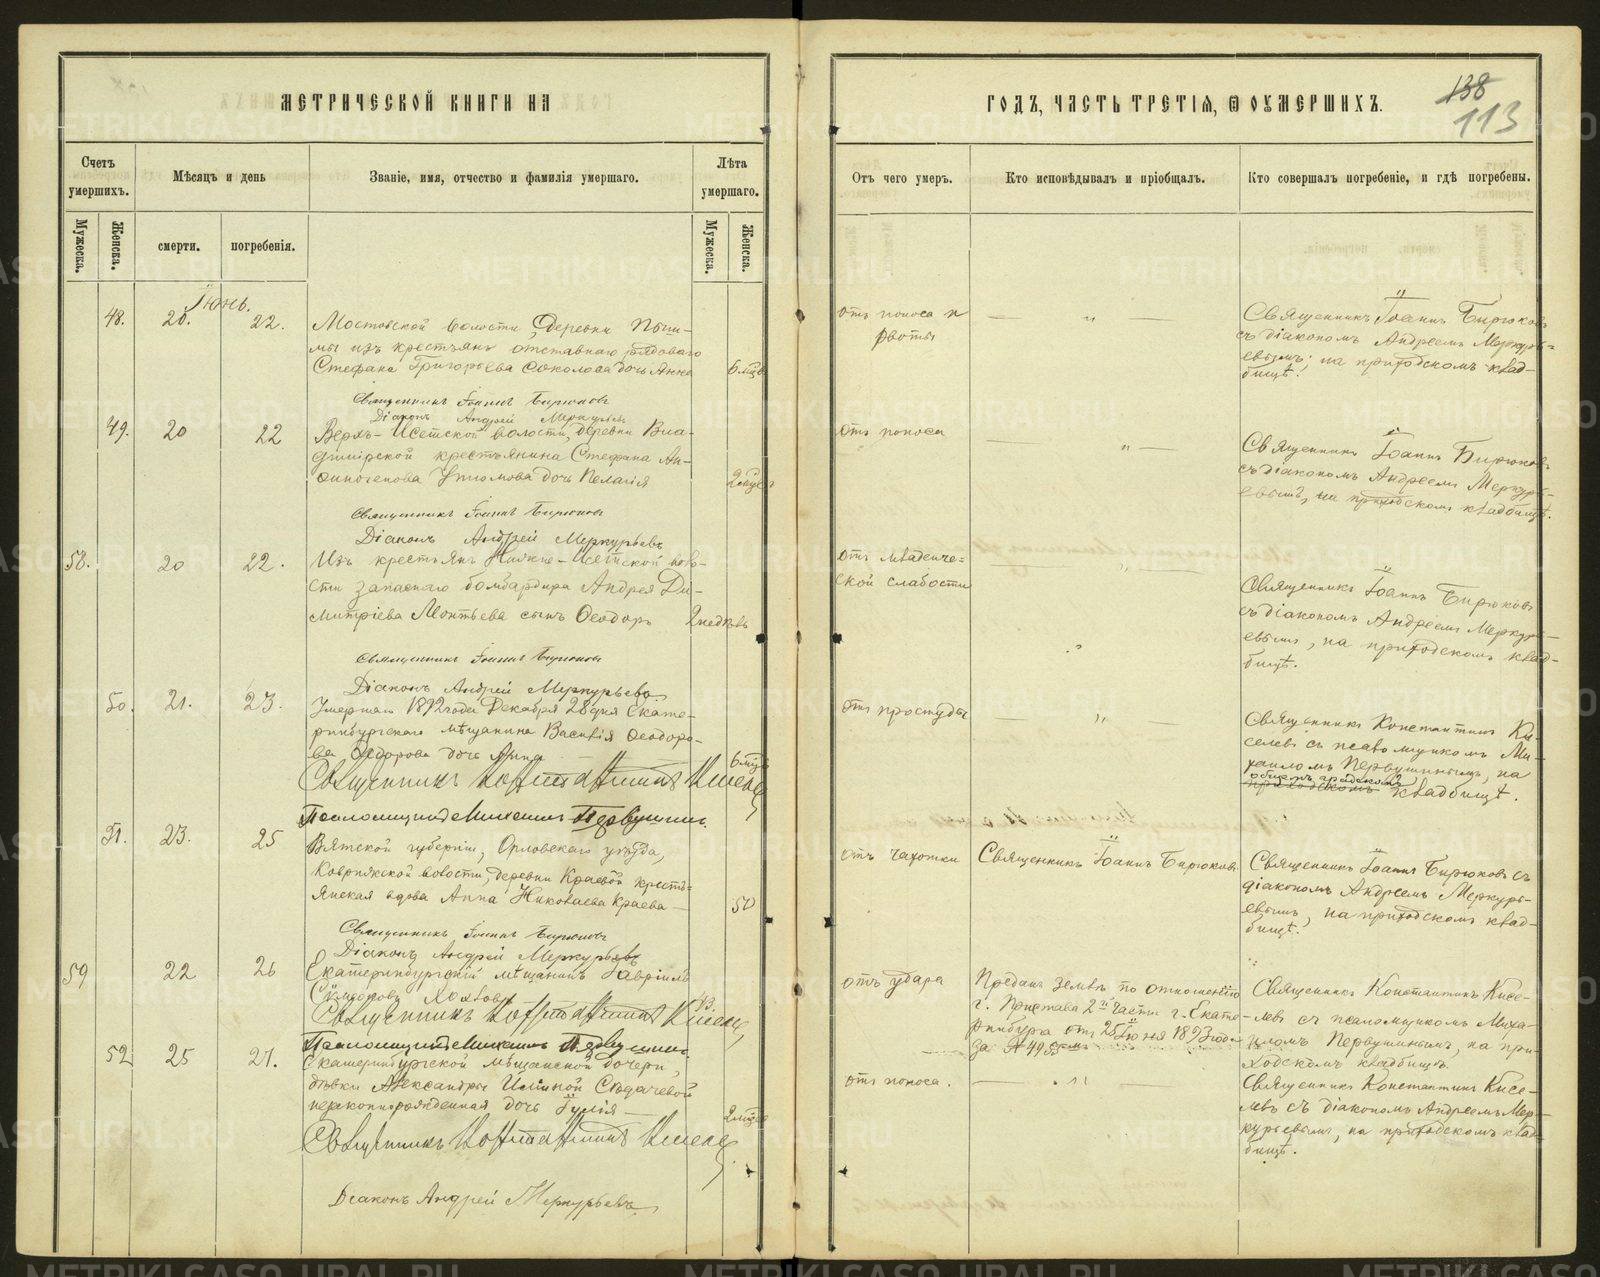 МЕТРИЧЕСКОЙ КНИГИ НА
Счетъ умершихъ.
Мѣсяцъ и день
Званіе, имя, отчество и фамилія умершаго.
Лѣта умершаго.
Мужеска.
Женска.
смерти.
погребенія.
Мужеска.
Женска.
Іюнь.
48. 20. 22. Мостовской волости, деревни Пыш-
мы изъ крестьянъ отставнаго рядоваго
Стефана Григорьева Соколова дочь Анна 6 мцв
Священникъ Іоаннъ Бирюковъ
Діаконъ Андрей Меркурьевъ
49. 20 22 Верхъ-Исетской волости, деревни Вла-
димірской крестьянина Стефана Ан-
финогенова Утюмова дочь Пелагія
Священникъ Іоаннъ Бирюковъ
Діаконъ Андрей Меркурьевъ
58. 20 22. Изъ крестьянъ Нижне-Исетской воло-
сти запаснаго бомбардира Андрея Ди-
митріева Леонтьева сынъ Ѳеодоръ 2 недѣль
Священникъ Іоаннъ Бирюковъ
Діаконъ Андрей Меркурьевъ
50. 21. 23. Умершая 1892 года Декабря 28 дня Екате-
ринбургскаго мѣщанина Василія Ѳеодоро-
ва Ѳедорова дочь Анна
Священникъ Константинъ Киселевъ
Псаломщикъ Михаилъ Первушинъ.
51. 23. 25 Вятской губерніи, Орловскаго уѣзда,
Коврижской волости, деревни Краевой кресть-
янская вдова Анна Николаева Краева 50
Священникъ Іоаннъ Бирюковъ
Діаконъ Андрей Меркурьевъ
59 22 26 Екатеринбургскій мѣщанинъ Гавріилъ
Священникъ Константинъ Киселевъ
Псаломщикъ Михаилъ Первушинъ.
52 25 27. Екатеринбургской мѣщанской дочери,
дѣвки Александры
незаконнорожденная дочь Іулія
Священникъ Константинъ Киселевъ
Діаконъ Андрей Меркурьевъ
ГОДЪ, ЧАСТЬ ТРЕТІЯ, Ѿ ОУМЕРШИХЪ.
138
113
Отъ чего умеръ.
Кто исповѣдывалъ и пріобщалъ.
Кто совершалъ погребеніе, и гдѣ погребены.
отъ поноса и
рвоты
Священникъ Іоаннъ Бирюковъ
съ діакономъ Андреемъ Меркурь-
евымъ, на приходскомъ клад-
бищѣ.
отъ поноса
Священникъ Іоаннъ Бирюковъ
съ діакономъ Андреемъ Меркурь-
евымъ, на приходскомъ кладбищѣ.
отъ младенче-
ской слабости
Священникъ Іоаннъ Бирюковъ
съ діакономъ Андреемъ Меркурь-
евымъ, на приходскомъ клад-
бищѣ.
отъ простуды
Священникъ Константинъ Ки-
селевъ съ псаломщикомъ Ми-
хаиломъ Первушинымъ, на
общемъ градскомъ
приходскомъ кладбищѣ.
отъ чахотки
Священникъ Іоаннъ Бирюковъ
Священникъ Іоаннъ Бирюковъ съ
діакономъ Андреемъ Меркурь-
евымъ, на приходскомъ клад-
бищѣ.
отъ удара
Преданъ землѣ по отношенію
г. Пристава 2й части г. Екате-
ринбурга отъ 25 Іюня 1893 года
за №
Священникъ Константинъ Кисе-
левъ съ псаломщикомъ Миха-
иломъ Первушинымъ, на при-
ходскомъ кладбищѣ.
отъ поноса.
Священникъ Константинъ Кисе-
левъ съ діакономъ Андреемъ Мер-
курьевымъ, на приходскомъ клад-
бищѣ.
METRIKI.GASO-URAL.RU